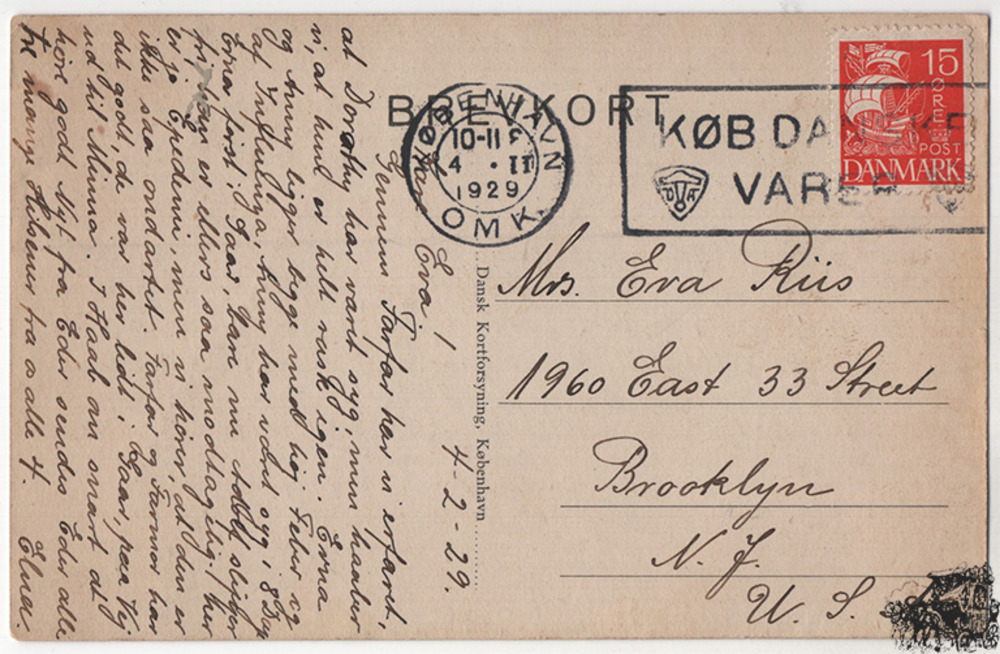 BREVKORT
KØBENHAVN
10-11 F
4 . II
1929
OMK.
KØB DANSKE
VARER
15
ØRE
POST
DANMARK
4-2-29.
Kære Eva!
Gennem Farfar har vi erfaret,
at Dorothy har været syg, men haaber
vi, at hun er helt rask igen. Erna
og Anny ligger begge med høj Feber og
af Influenza, Anny har været syg i 8 Dage
Erna først i Gaar, bare nu slipper
fri, han er ellers saa modtagelig. Her
er jo Epidemi, men vi hører, at den er
ikke saa ondartet. Farfar og Farmor har
det godt, de var her lidt i Gaar, paa Vej
ud til Minna. I Haab om snart at
høre godt Nyt fra Eder sendes Eder alle
fra os alle 4.
mange Hilsener
Dansk Kortforsyning, København
Mrs. Eva Riis
1960 East 33 Street
Brooklyn
N. J.
U. S.